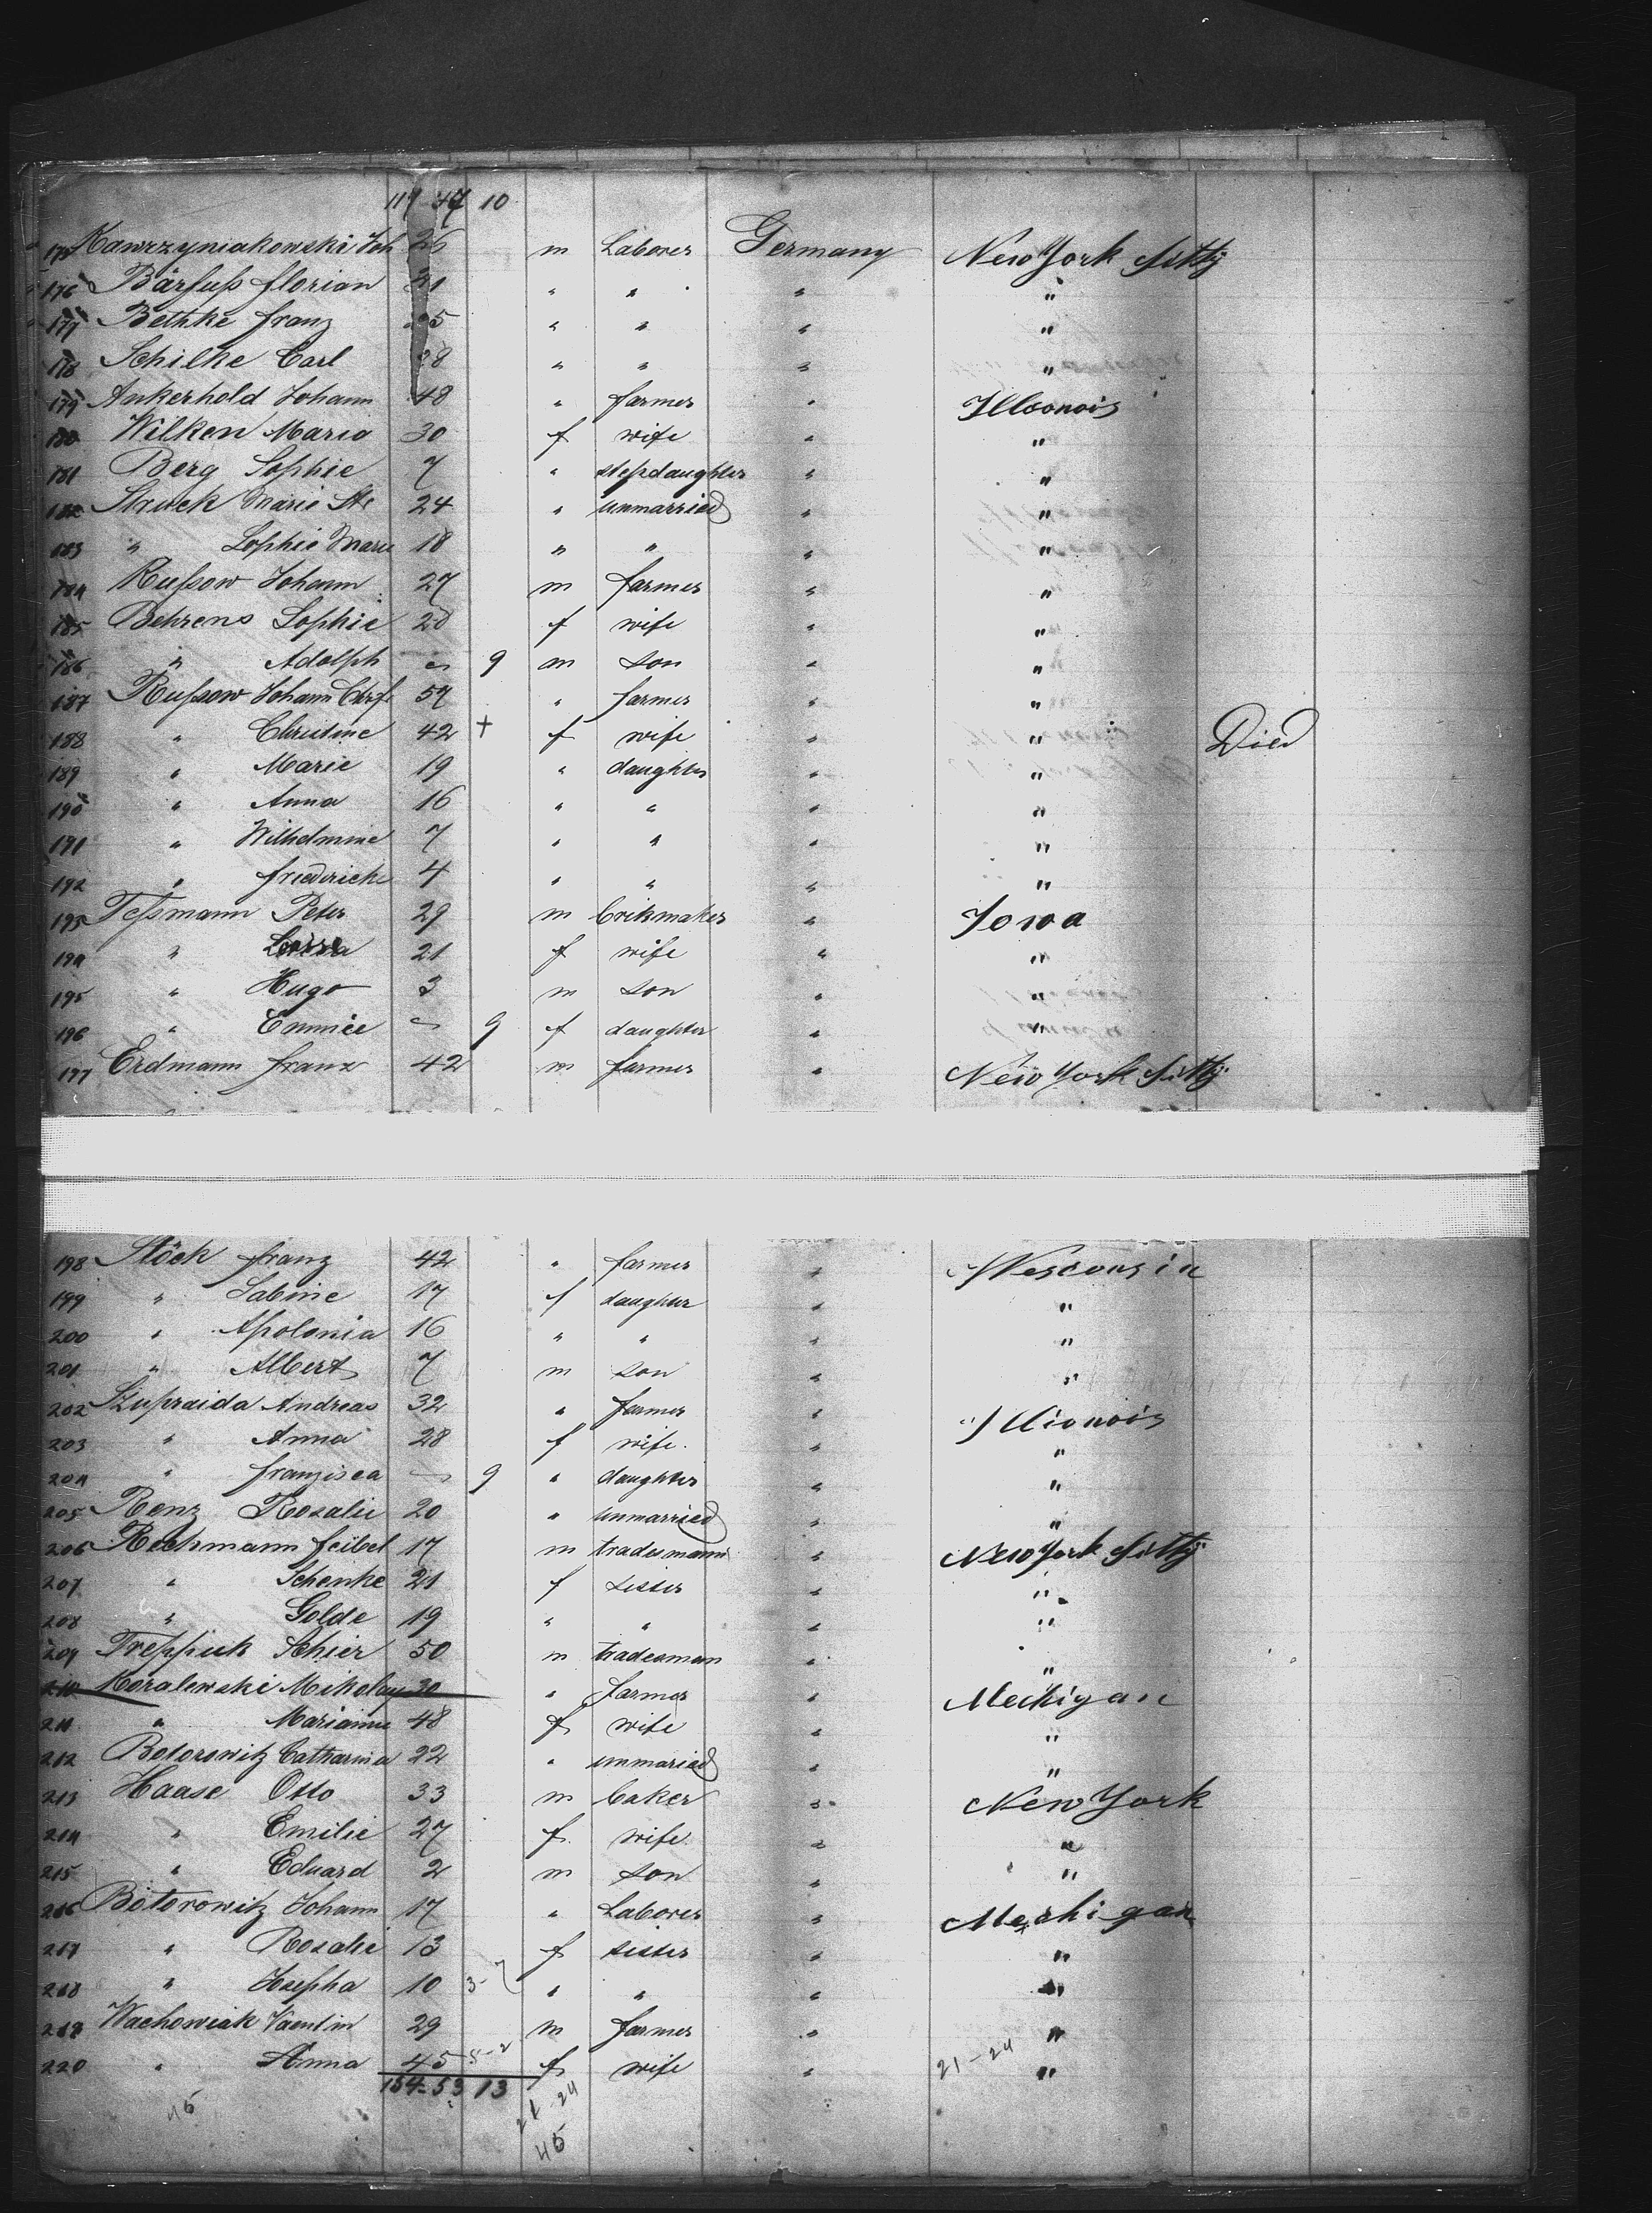 117 47 10
175 Kawrzyniakowski Joh 26 m Laborer Germany New York Sitty
176 Bärfuß Florian 31 " " " "
177 Bethke Franz 25 " " " "
178 Schilke Carl 28 " " " "
179 Ankerhold Johann 48 " farmer " Illoonois
180 Wilken Maria 30 f wife " "
181 Berg Sophie 7 " stepdaughter " "
182 Struck Marie 24 " unmarried " "
183 " Sophie Marie 18 " " " "
184 Rußow Johann 27 m farmer " "
185 Behrens Sophie 28 f wife " "
186 " Adolph 9 m son " "
187 Rußow Johann 57 " farmer " "
188 " Christine 42 + f wife " " Died
189 " Marie 19 " daughter " "
190 " Anna 16 " " " "
191 " Wilhelmine 7 " " " "
192 " Friedericke 4 " " " "
193 Teßmann Peter 29 m brikmaker " Iowa
194 " 21 f wife " "
195 " Hugo 3 m son " "
196 " Emmie 9 f daughter " "
197 Erdmann Franz 42 m farmer " New York Sitty
198 Stöck Franz 42 " farmer " Wesconsin
199 " Sabine 17 f daughter " "
200 " Apolonia 16 " " " "
201 " Albert 7 m son " "
202 Szupraida Andreas 32 " farmer " Illionois
203 " Anna 28 f wife " "
204 " Franzisca 9 " daughter " "
205 Renz Rosalie 20 " unmarried " "
206 Rechmann Feibel 17 m tradesmann " New York Sitty
207 " Schenke 21 f sister " "
208 " Golde 19 " " " "
209 Treppuk Schier 50 m tradesman " "
210 Koralewski Mikolay 30 " farmer " Mechigan
211 " Marianne 48 f wife " "
212 Botorowitz Catharina 22 " unmaried " "
213 Haase Otto 33 m baker " New York
214 " Emilie 27 f wife " "
215 " Eduard 2 m son " "
216 Botorowitz Johann 17 " Laborer " Mechigan
217 " Rosalie 13 f sister " "
218 " Josepha 10 3-7 " " " "
219 Wachowiak Vaentin 29 m farmer " "
220 " Anna 45 5-2 f wife " 21-24 "
154-53 13
21-24
45